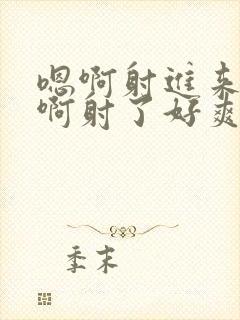 嗯啊射进来
啊射了好爽
季末